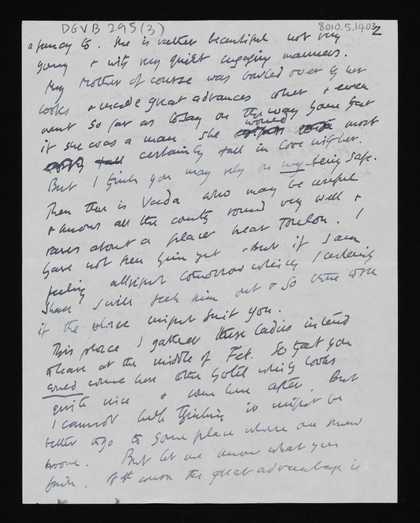 DGVB 295(3)
8010.5.1403
2
a fancy to. She is rather beautiful not very
young & with very quiet engaging manners.
My Mother of course was bowled over by her
looks & made great advances & even
went so far as to say on the way home that
if she was a man she would most
certainly fall in love with her.
But I think you may rely on my being safe.
Then there is who may be useful
& knows all the country round very well &
raves about a place near Toulon. I
have not seen him yet but if I am
feeling tomorrow which I certainly
shall I will seek him out & so
if the place might suit you.
This place I gather these ladies intend
to leave at the middle of Feb. So that you
could come here the hotel which looks
quite nice & come here after. But
I cannot help thinking it might be
better to go to some place where one knew
no one. But let me know what you
think. Of course the great advantage is